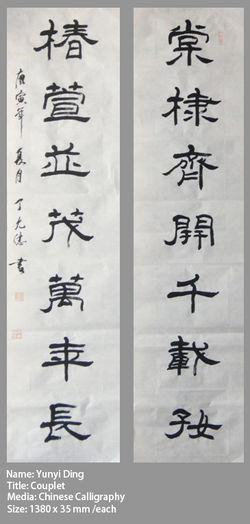 棠棣齊開千載好
椿萱並茂萬年長
庚寅年 夏月 丁允 書
Name: Yunyi Ding
Title: Couplet
Media: Chinese Calligraphy
Size: 1380 x 35 mm /each